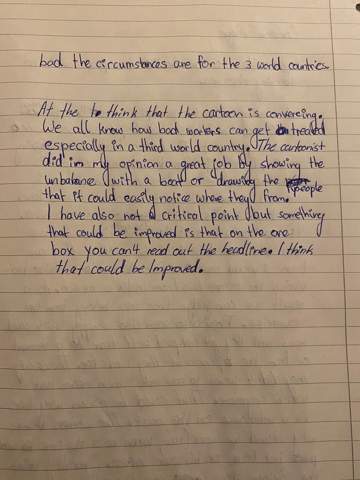 bad the circumstances are for the 3 world countries.
At the to think that the cartoon is convereing.
We all know how bad workers can get treated
especially in a third world country. The cartoonist
did in my opinion a great job by showing the
unbalance with a boat or drawing the people
that it could easily notice where they from.
I have also not a critical point but something
that could be improved is that on the one
box you can't read out the headline. I think
that could be improved.